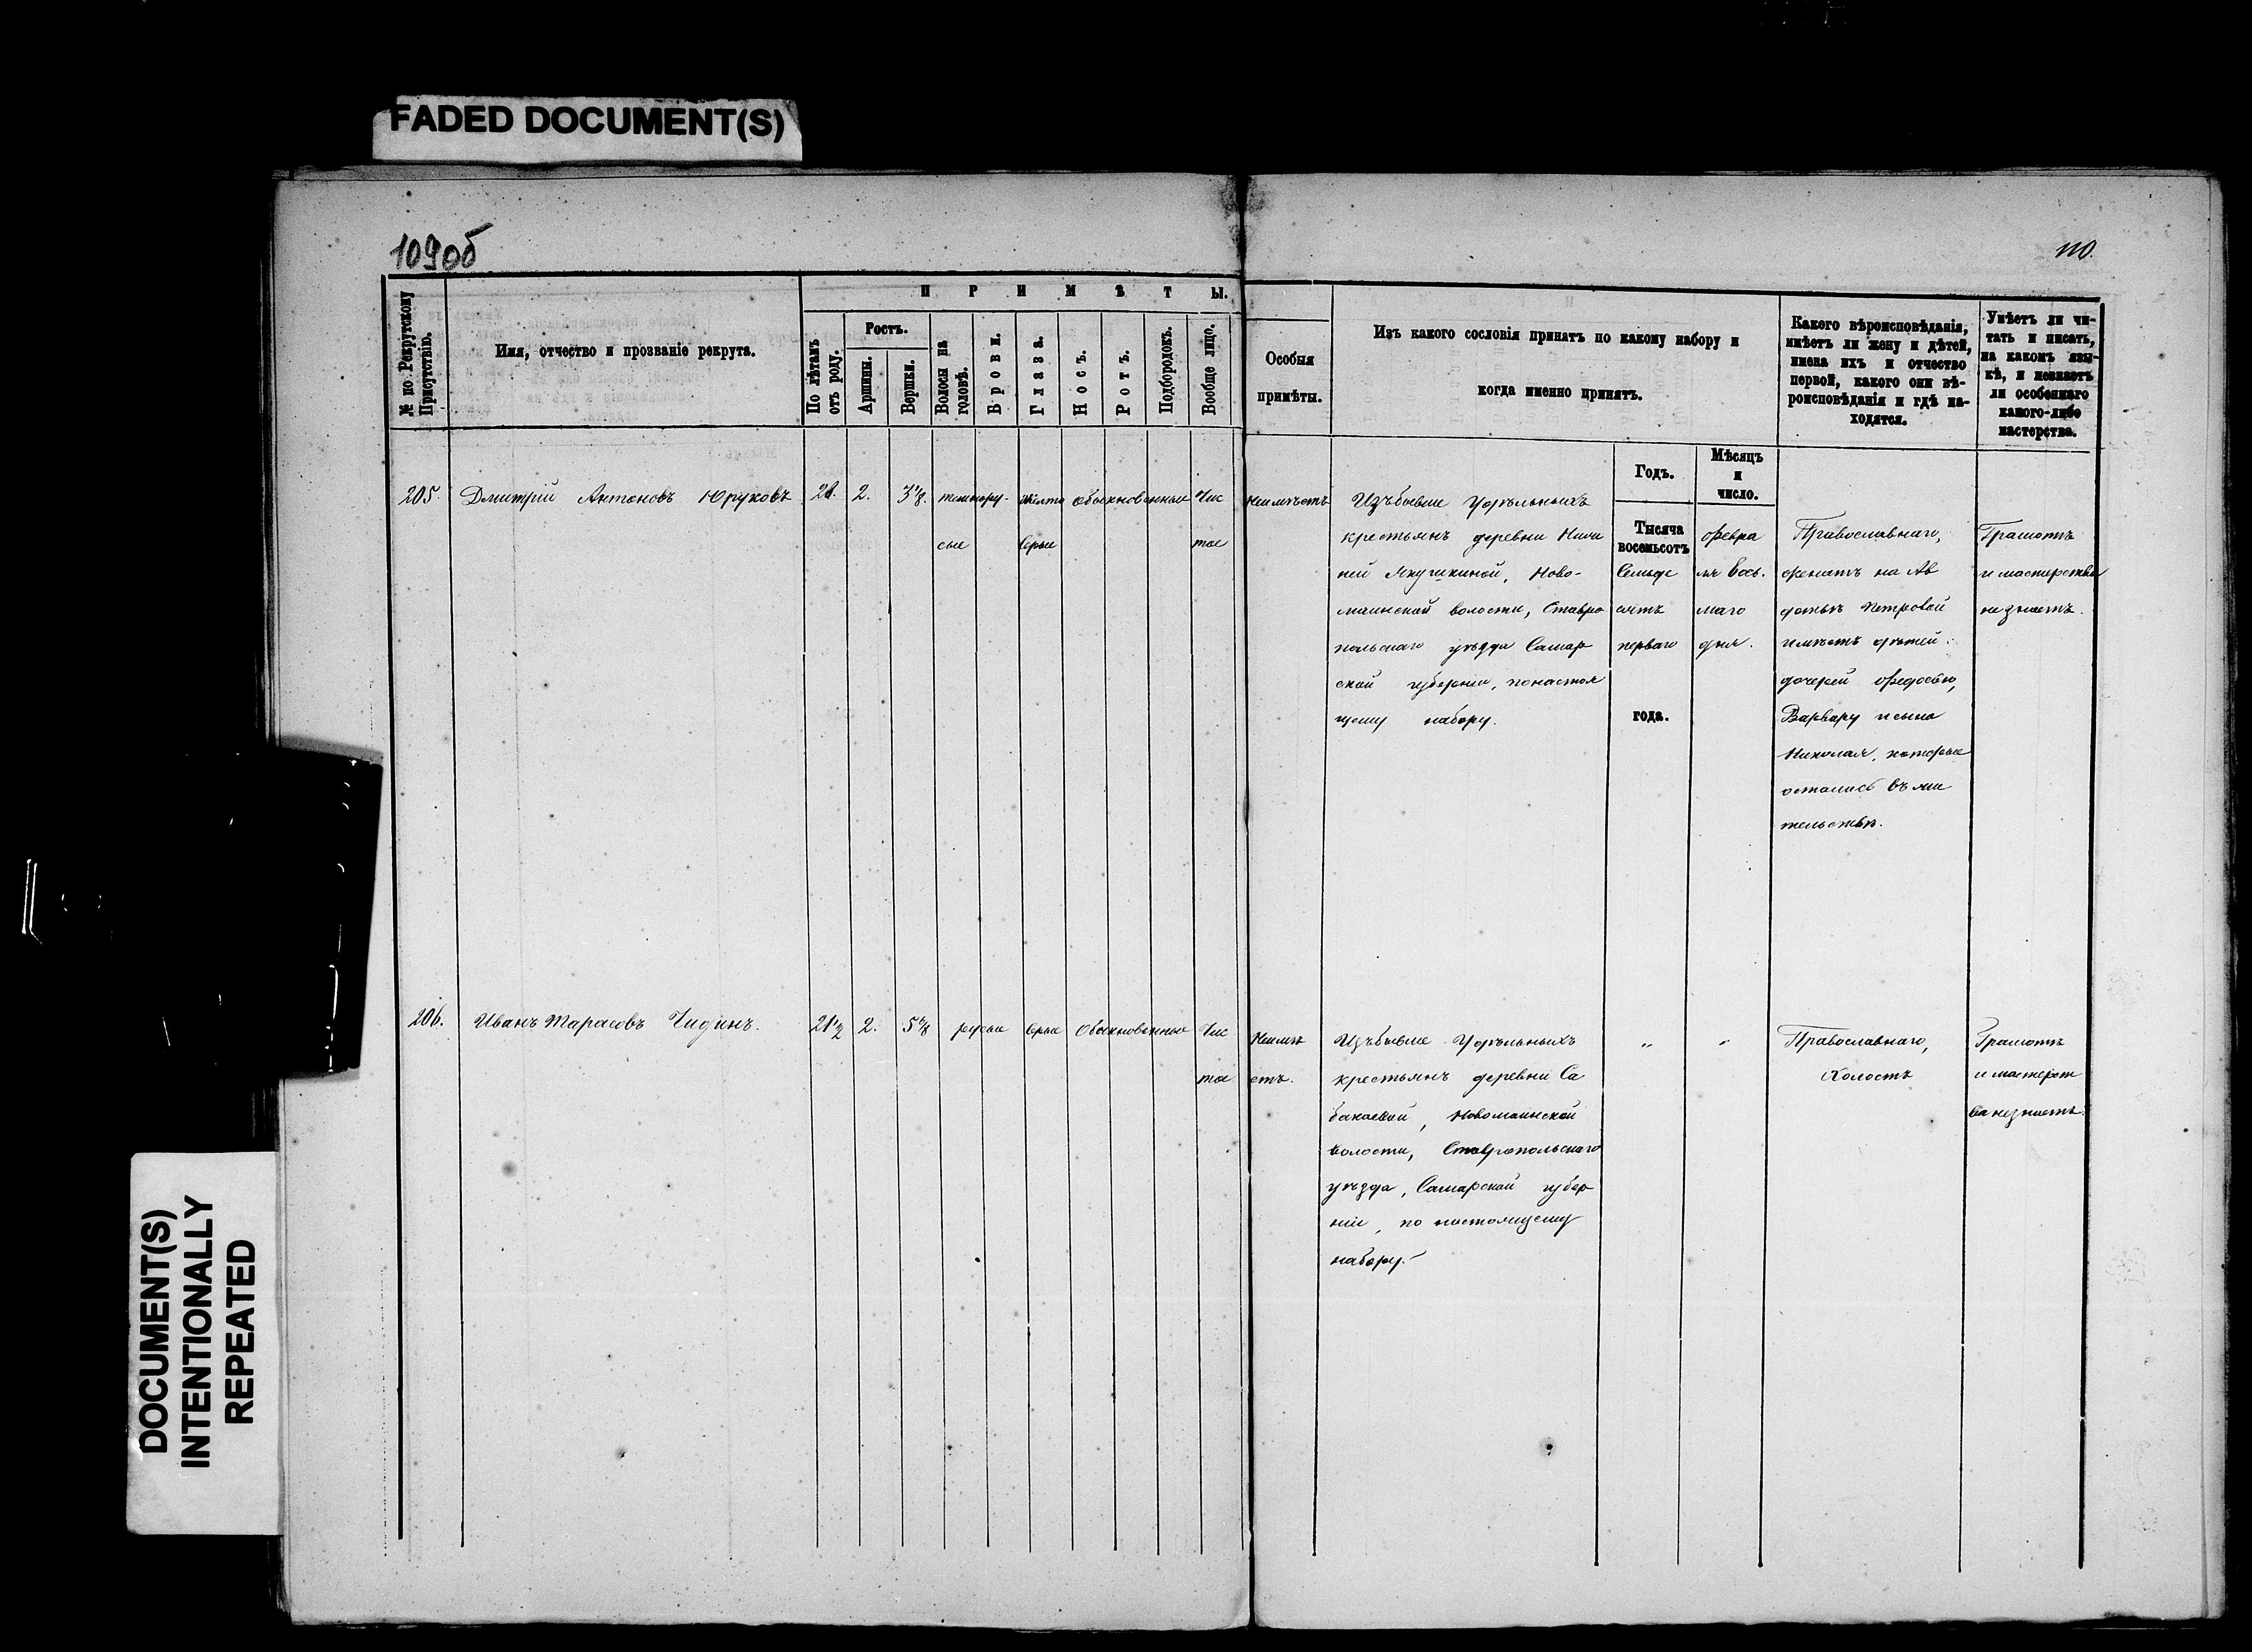 FADED DOCUMENT(S)
109об
110.
№ по Рекрутскому Присутствію.
Имя, отчество и прозваніе рекрута.
ПРИМѢТЫ.
По лѣтамъ отъ роду.
Ростъ.
Аршины.
Вершки.
Волосы на головѣ.
Брови.
Глаза.
Носъ.
Ротъ.
Подбородокъ.
Вообще лицо.
Особыя
примѣты.
Изъ какого сословія принятъ по какому набору и
когда именно принятъ.
Какого вѣроисповѣданія,
имѣетъ ли жену и дѣтей,
имена ихъ и отчество
первой, какого они вѣ-
роисповѣданія и гдѣ на-
ходятся.
Умѣетъ ли чи-
тать и писать,
на какомъ язы-
кѣ, и незнаетъ
ли особеннаго
какого-либо
мастерства.
Годъ.
Мѣсяцъ
и
число.
205. Дмитрій Антоновъ Юруковъ 21. 2. 3 1/8. темнору-
сые
Желто
серые
обыкновенные
Чис
тое
Неимѣетъ
Изъ бывше Удѣльныхъ
крестьянъ деревни Ниж
ней Якушкиной, Ново-
маинской волости, Ставро
польскаго уѣзда Самар
ской губерніи, по настоя
щему набору.
Тысяча
восемьсотъ
Семьде
сятъ
перваго
года.
Февра
ля Вось.
маго
дня.
Православнаго,
женатъ на Ав
дотьѣ Петровой
имѣетъ дѣтей:
дочерей Федосью,
Варвару и сына
Николая, которые
остались въ жи
тельствѣ.
Грамотѣ
и мастерства
не знаетъ.
206. Иванъ Тарасовъ Чидинъ. 21 1/2 2. 5 6/8 русые серые Обыкновенные Чис
тое
Неимѣ
етъ.
Изъ бывше Удѣльныхъ
крестьянъ деревни Са
бакаевой, Новомаинской
волости, Ставропольскаго
уѣзда, Самарской губер
ніи, по настоящему
набору.
" "
Православнаго,
Холостъ
Грамотѣ
и мастерст
ва незнаетъ.
DOCUMENT(S)
INTENTIONALLY
REPEATED